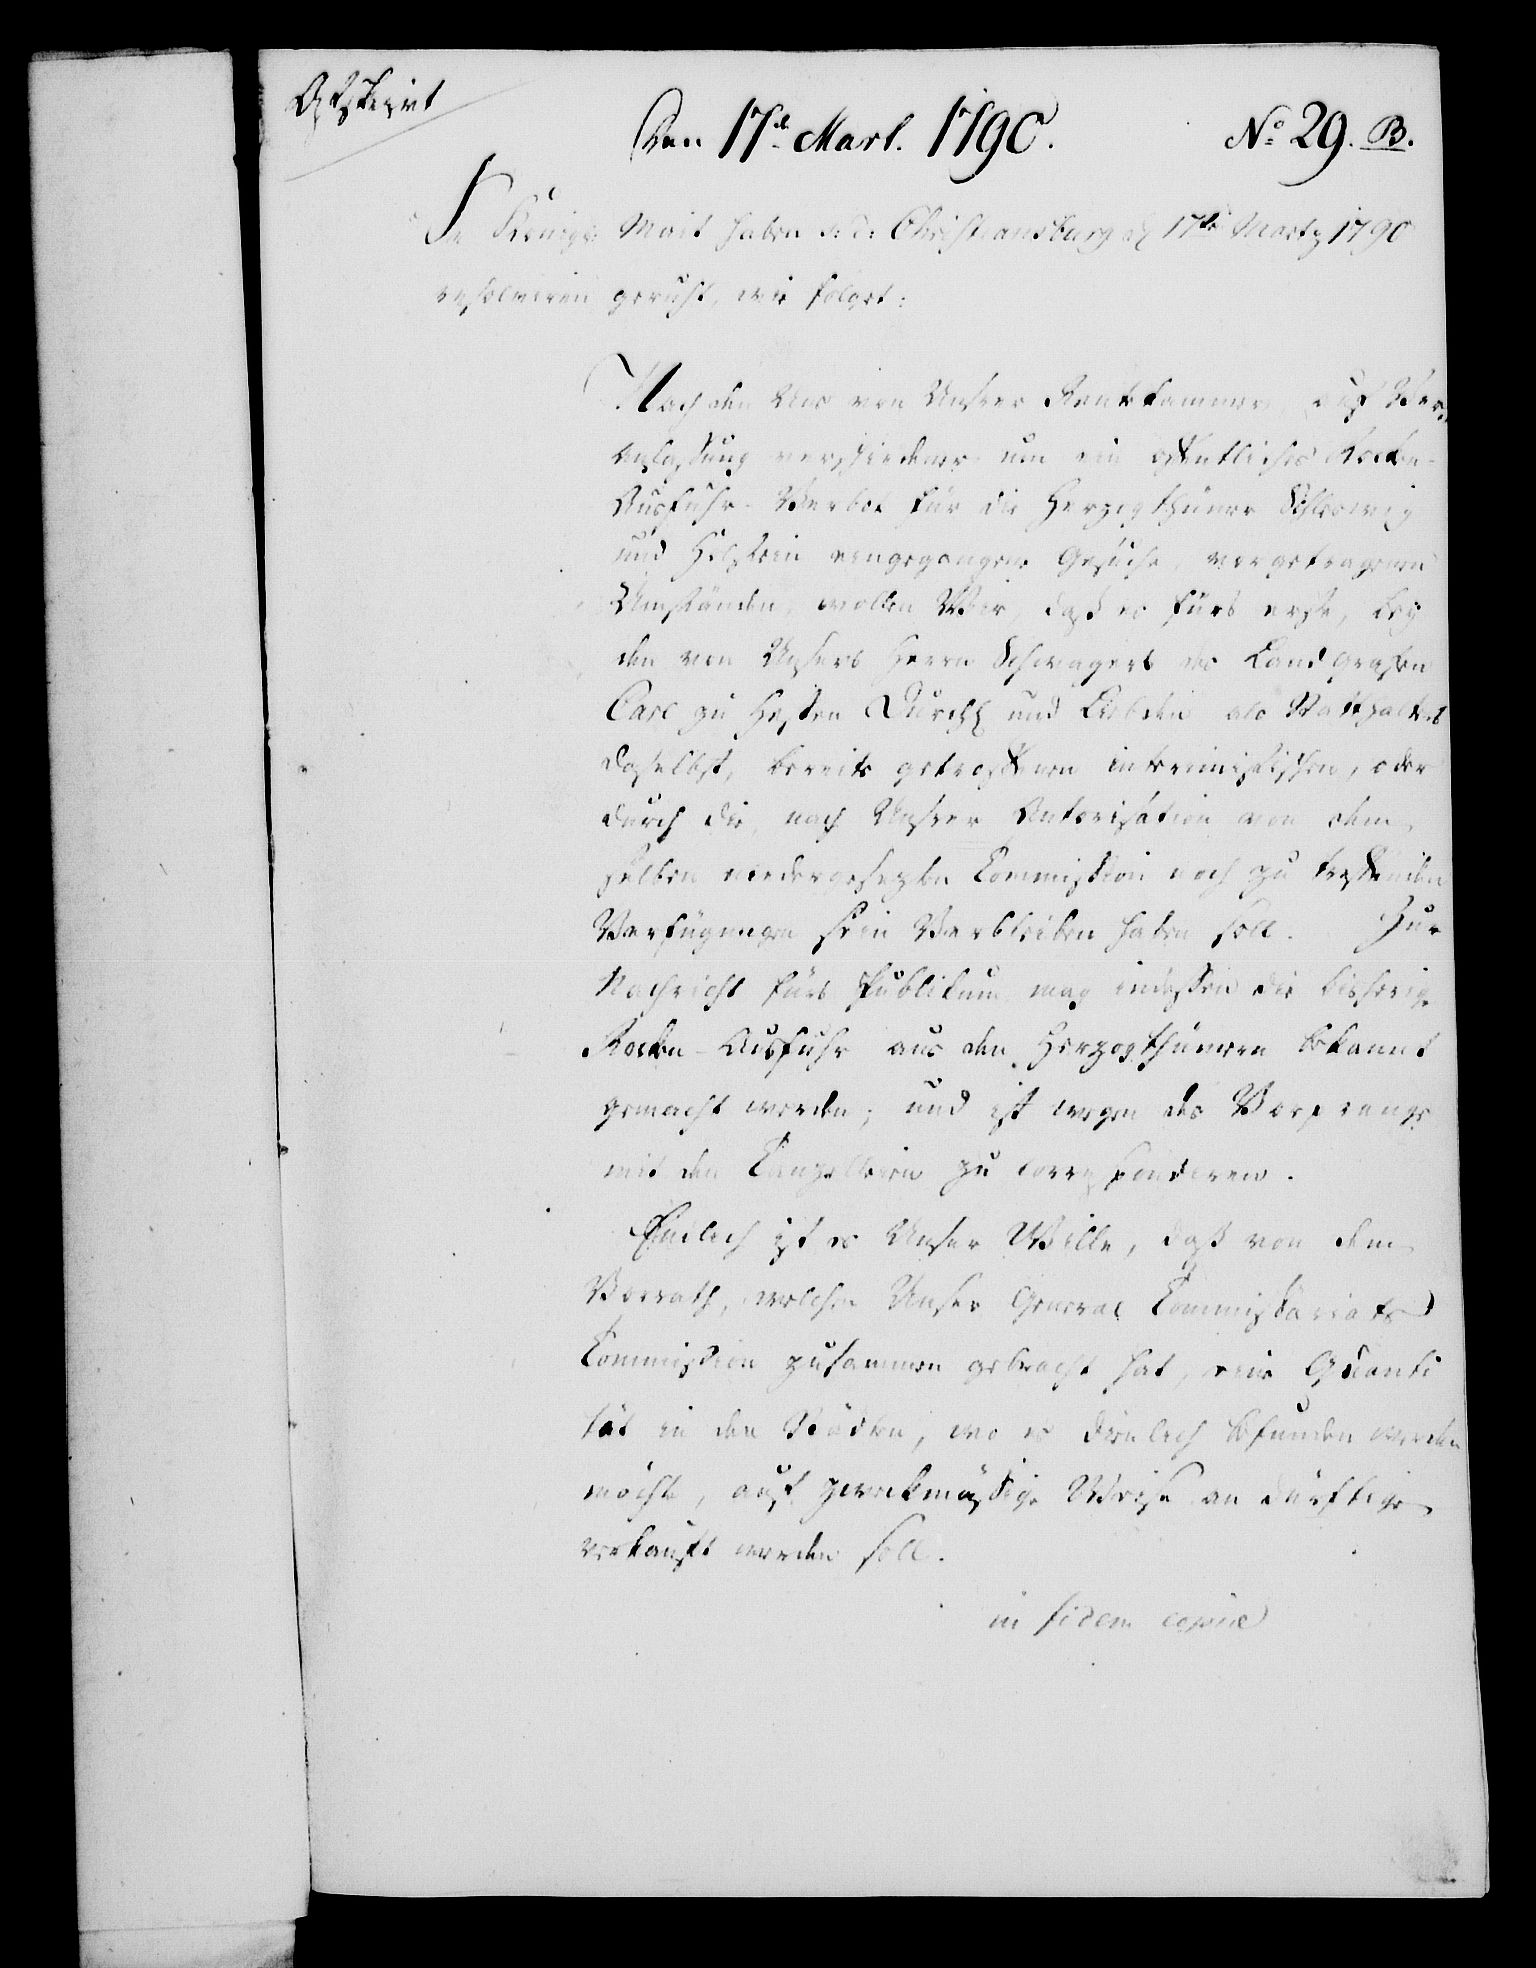 Afskrivt
Den 17de Mart. 1790. No 29. B.
Se Königl: Mait haben d: d: Christiansburg d 17te Martz 1790
resolviren geruht, wie folget:
Nach den Uns von Unserer Rentekammer, auf Ver-
anlassung verschiedener um ein öffentliches Rocken-
Ausfuhr-Verbot für die Herzogthümer Schleswig
und Holstein eingegangenen Gesuche, vorgetragenen
Umständen, wollen Wir, daß es fürs erste, bey
den von Unsers Herrn Schwagers des Landgrafen
Carl zu Hessen Durchl und Liebden als Statthalters
daselbst, bereits getroffenen interimistischen, oder
durch die, nach Unserer Autorisation von dem
selben niedergesezten Commission noch zu treffenden
Verfügungen sein Verbleiben haben soll. Zur
Nachricht fürs Publikum mag indessen die bisherige
Rocken-Ausfuhr aus den Herzogthümern bekannt
gemacht werden; und ist wegen des
mit den Canzelleien zu correspondiren.
Endlich ist es Unser Wille, daß von dem
Vorrath, welchen Unser General Commissariats
Commission zusammen gebracht hat, eine Quanti
tät in den Städten, wo es dienlich befunden werden
möchte, auf zweckmässige Weise an dürftige
verkauft werden soll.
in fidem copiæ